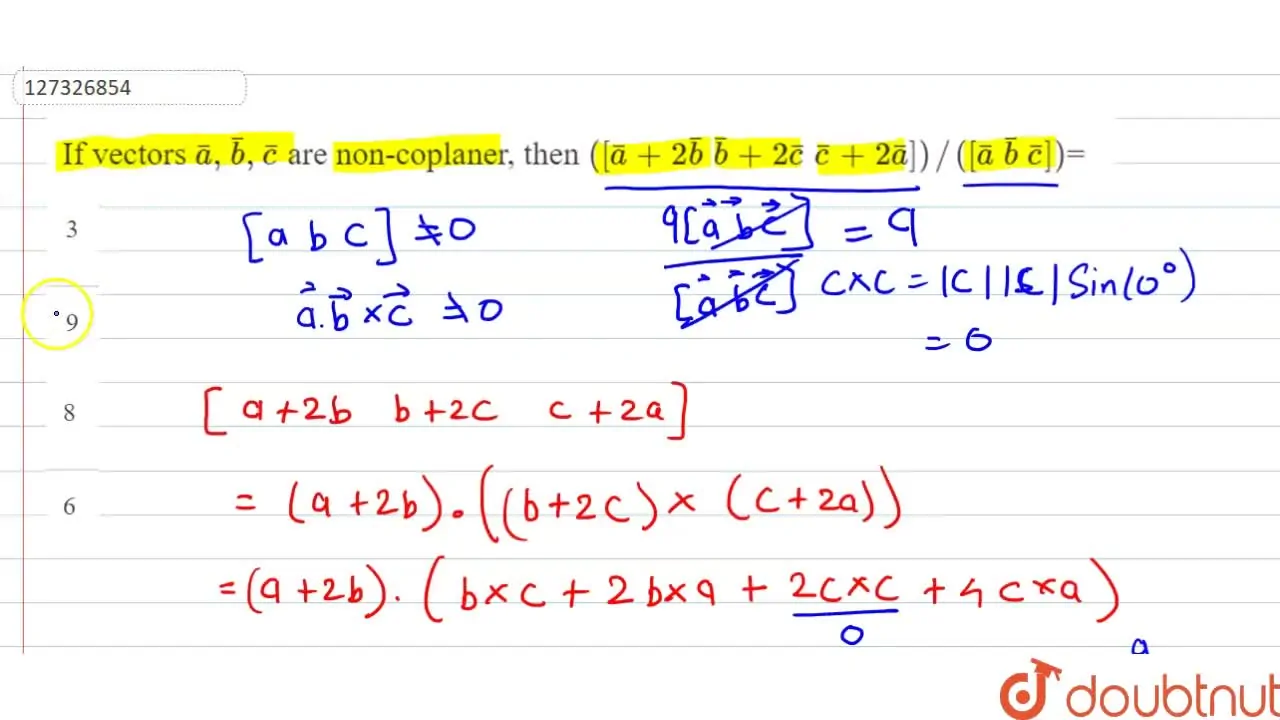 127326854
If vectors a̅, b̅, c̅ are non-coplaner, then ([a̅ + 2b̅ b̅ + 2c̅ c̅ + 2a̅]) / ([a̅ b̅ c̅])=
3
[a b c] ≠ 0
9[a⃗ b⃗ c⃗] = 9
[a⃗ b⃗ c⃗]
c×c = |c||c| Sin(0°)
= 0
a⃗.b⃗ × c⃗ ≠ 0
9
8
[a+2b b+2c c+2a]
6
= (a+2b).((b+2c) × (c+2a))
= (a+2b).(b×c + 2b×a + 2c×c + 4c×a)
0
a
doubtnut